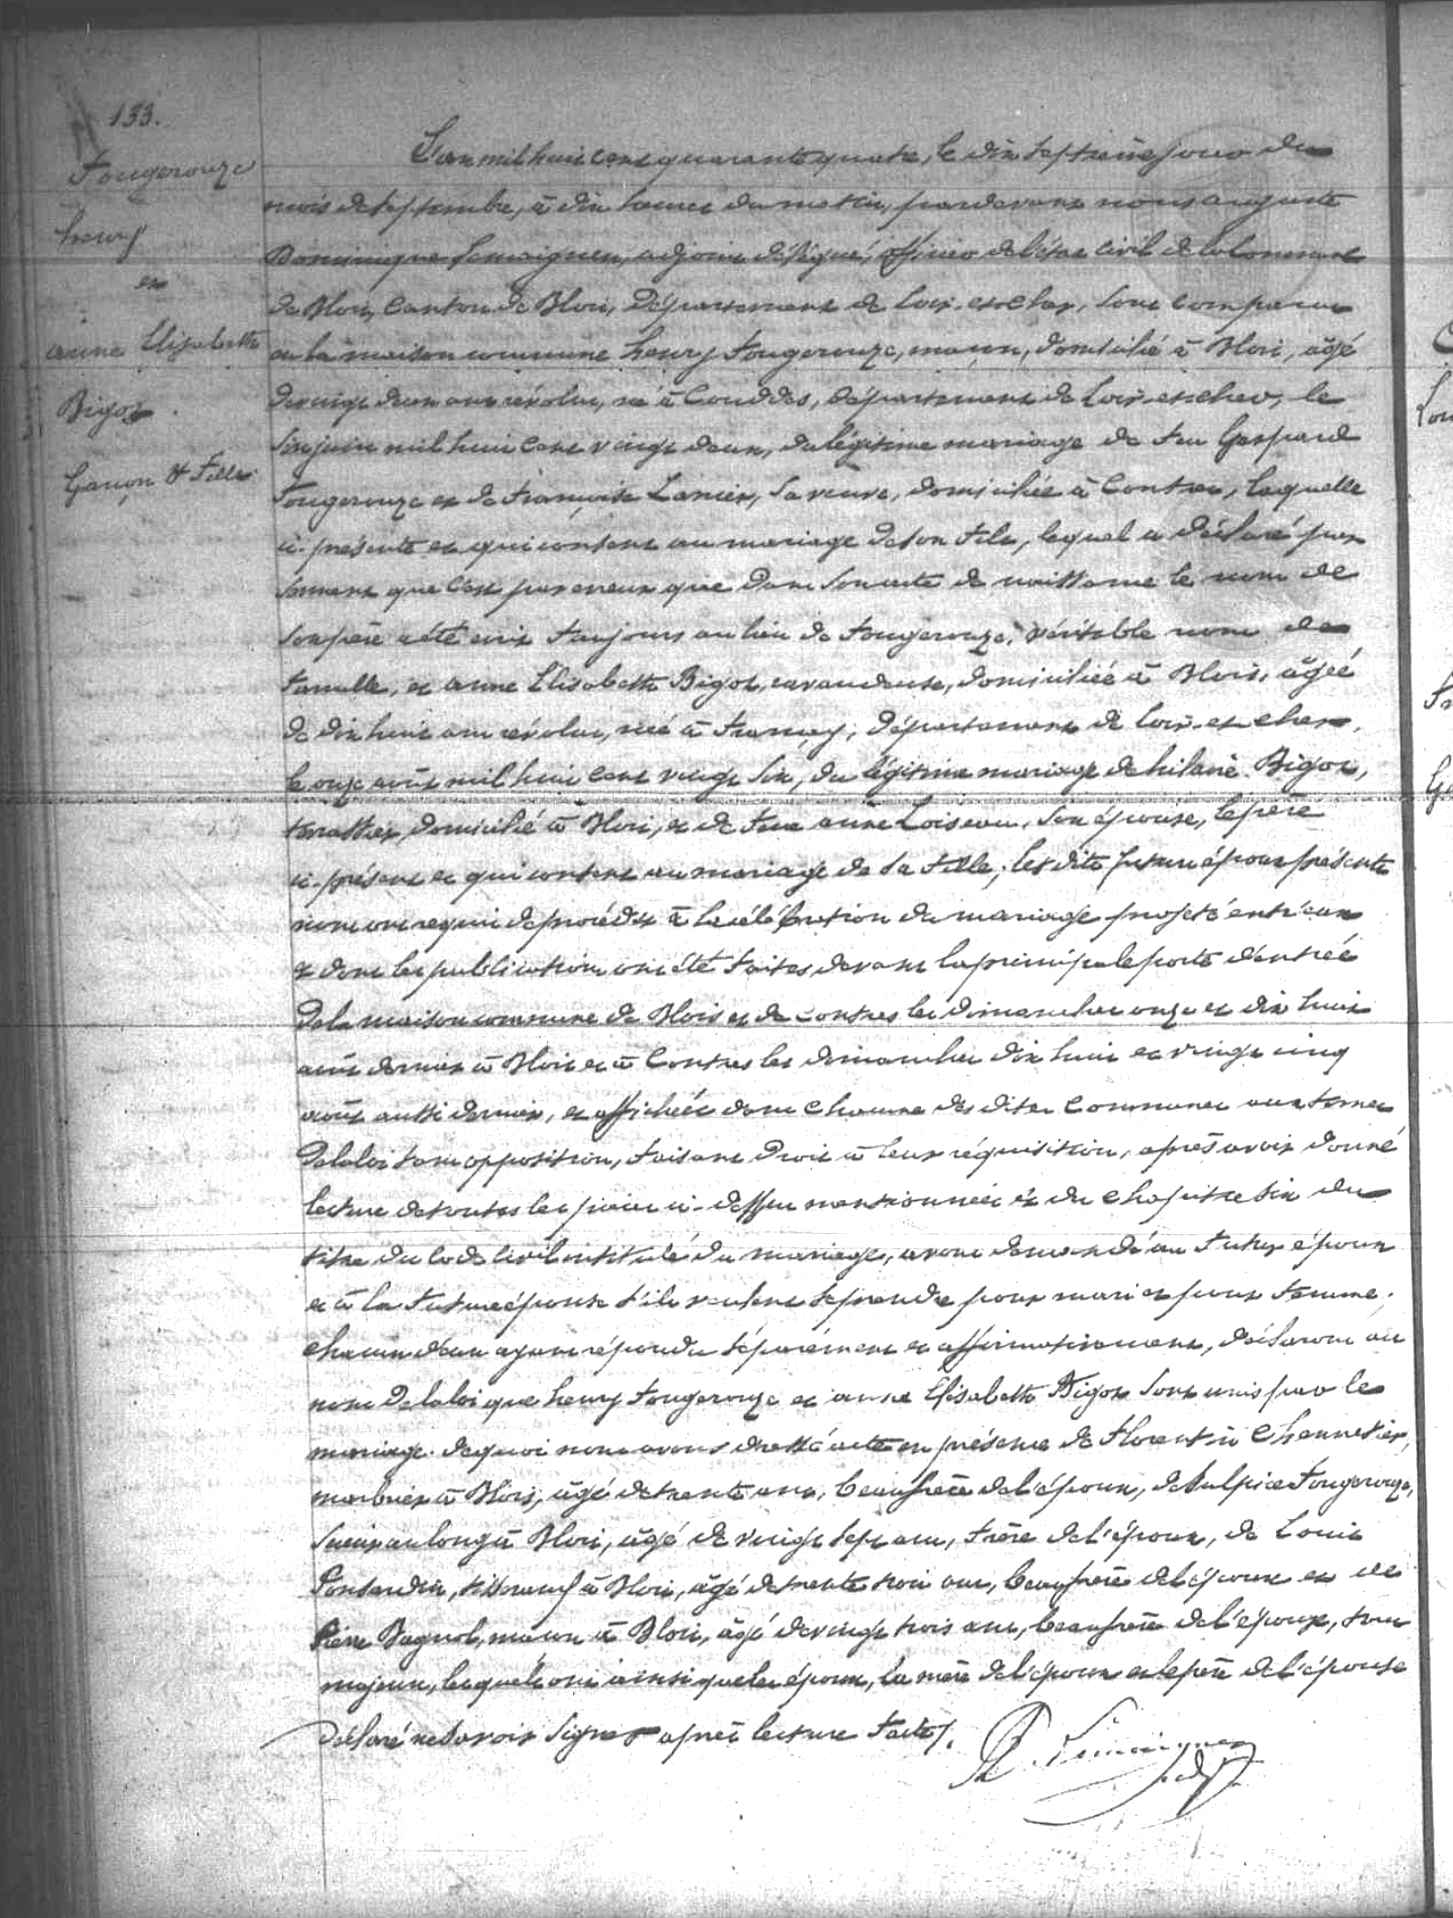 133.
Fougerouze
henry
et
anne Elisabeth
Bigot.
Garçon & Fille
L'an mil huit cent quarante quatre, le dix septième jour du
mois de septembre, à dix heures du matin, pardevant nous auguste
Dominique Lemaignen, adjoint délégué, officier de l'état civil de la commune
de Blois, canton de Blois, département de Loir-et-cher, sont comparus
en la maison commune henry Fougerouze, maçon, domicilié à Blois, âgé
de vingt deux ans révolus, né à Couddes, département de Loir-et-cher, le
six juin mil huit cent vingt deux, du légitime mariage de feu Gaspard
Fougerouze et de Françoise Lanier, sa veuve, domiciliée à Contres, laquelle
ci-présente et qui consent au mariage de son fils, lequel a déclaré par
serment que c'est par erreur que dans son acte de naissance le nom de
son père a été écrit Faujours au lieu de Fougerouze, véritable nom de
famille, et anne Elisabeth Bigot, ravaudeuse, domiciliée à Blois, âgée
de dix huit ans révolus, née à Françay, département de loir-et-cher,
le onze août mil huit cent vingt six, du légitime mariage de hilaire Bigot,
terrassier, domicilié à Blois, et de feue anne Loiseau, son épouse, le père
ci-présent et qui consent au mariage de sa fille; lesdits futurs époux présents
nous ont requis de procéder à la célébration du mariage projeté entr'eux
et dont les publications ont été faites devant la principale porte d'entrée
de la maison commune de Blois et de contres les dimanches onze et dix huit
août dernier à Blois et à Contres les dimanches dix huit et vingt cinq
août aussi dernier, et affichées dans chacune des dites communes aux termes
de la loi sans opposition, faisant droit à leur réquisition, après avoir donné
lecture de toutes les pièces ci-dessus mentionnées et du chapitre six du
titre du code civil intitulé du mariage, avons demandé au futur époux
et à la future épouse s'ils veulent se prendre pour mari et pour femme;
chacun d'eux ayant répondu séparément et affirmativement, déclarons au
nom de la loi que henry Fougerouze et anne Elisabeth Bigot sont unis par le
mariage. de quoi nous avons dressé acte en présence de Florentin Chennetier,
marbrier à Blois, âgé de trente ans, beaufrère de l'époux, de Sulpice Fougerouze,
scieur au long à Blois, âgé de vingt sept ans, frère de l'époux, de Louis
âgé de trente trois ans, beaufrère de l'époux et de
Pierre Bagnol, maçon à Blois, âgé de vingt trois ans, beaufrère de l'époux, tous
majeurs, lesquels ont ainsi que les époux, la mère de l'époux et le père de l'épouse
déclaré ne savoir signer après lecture faite/.
D. Lemaignen
adjt